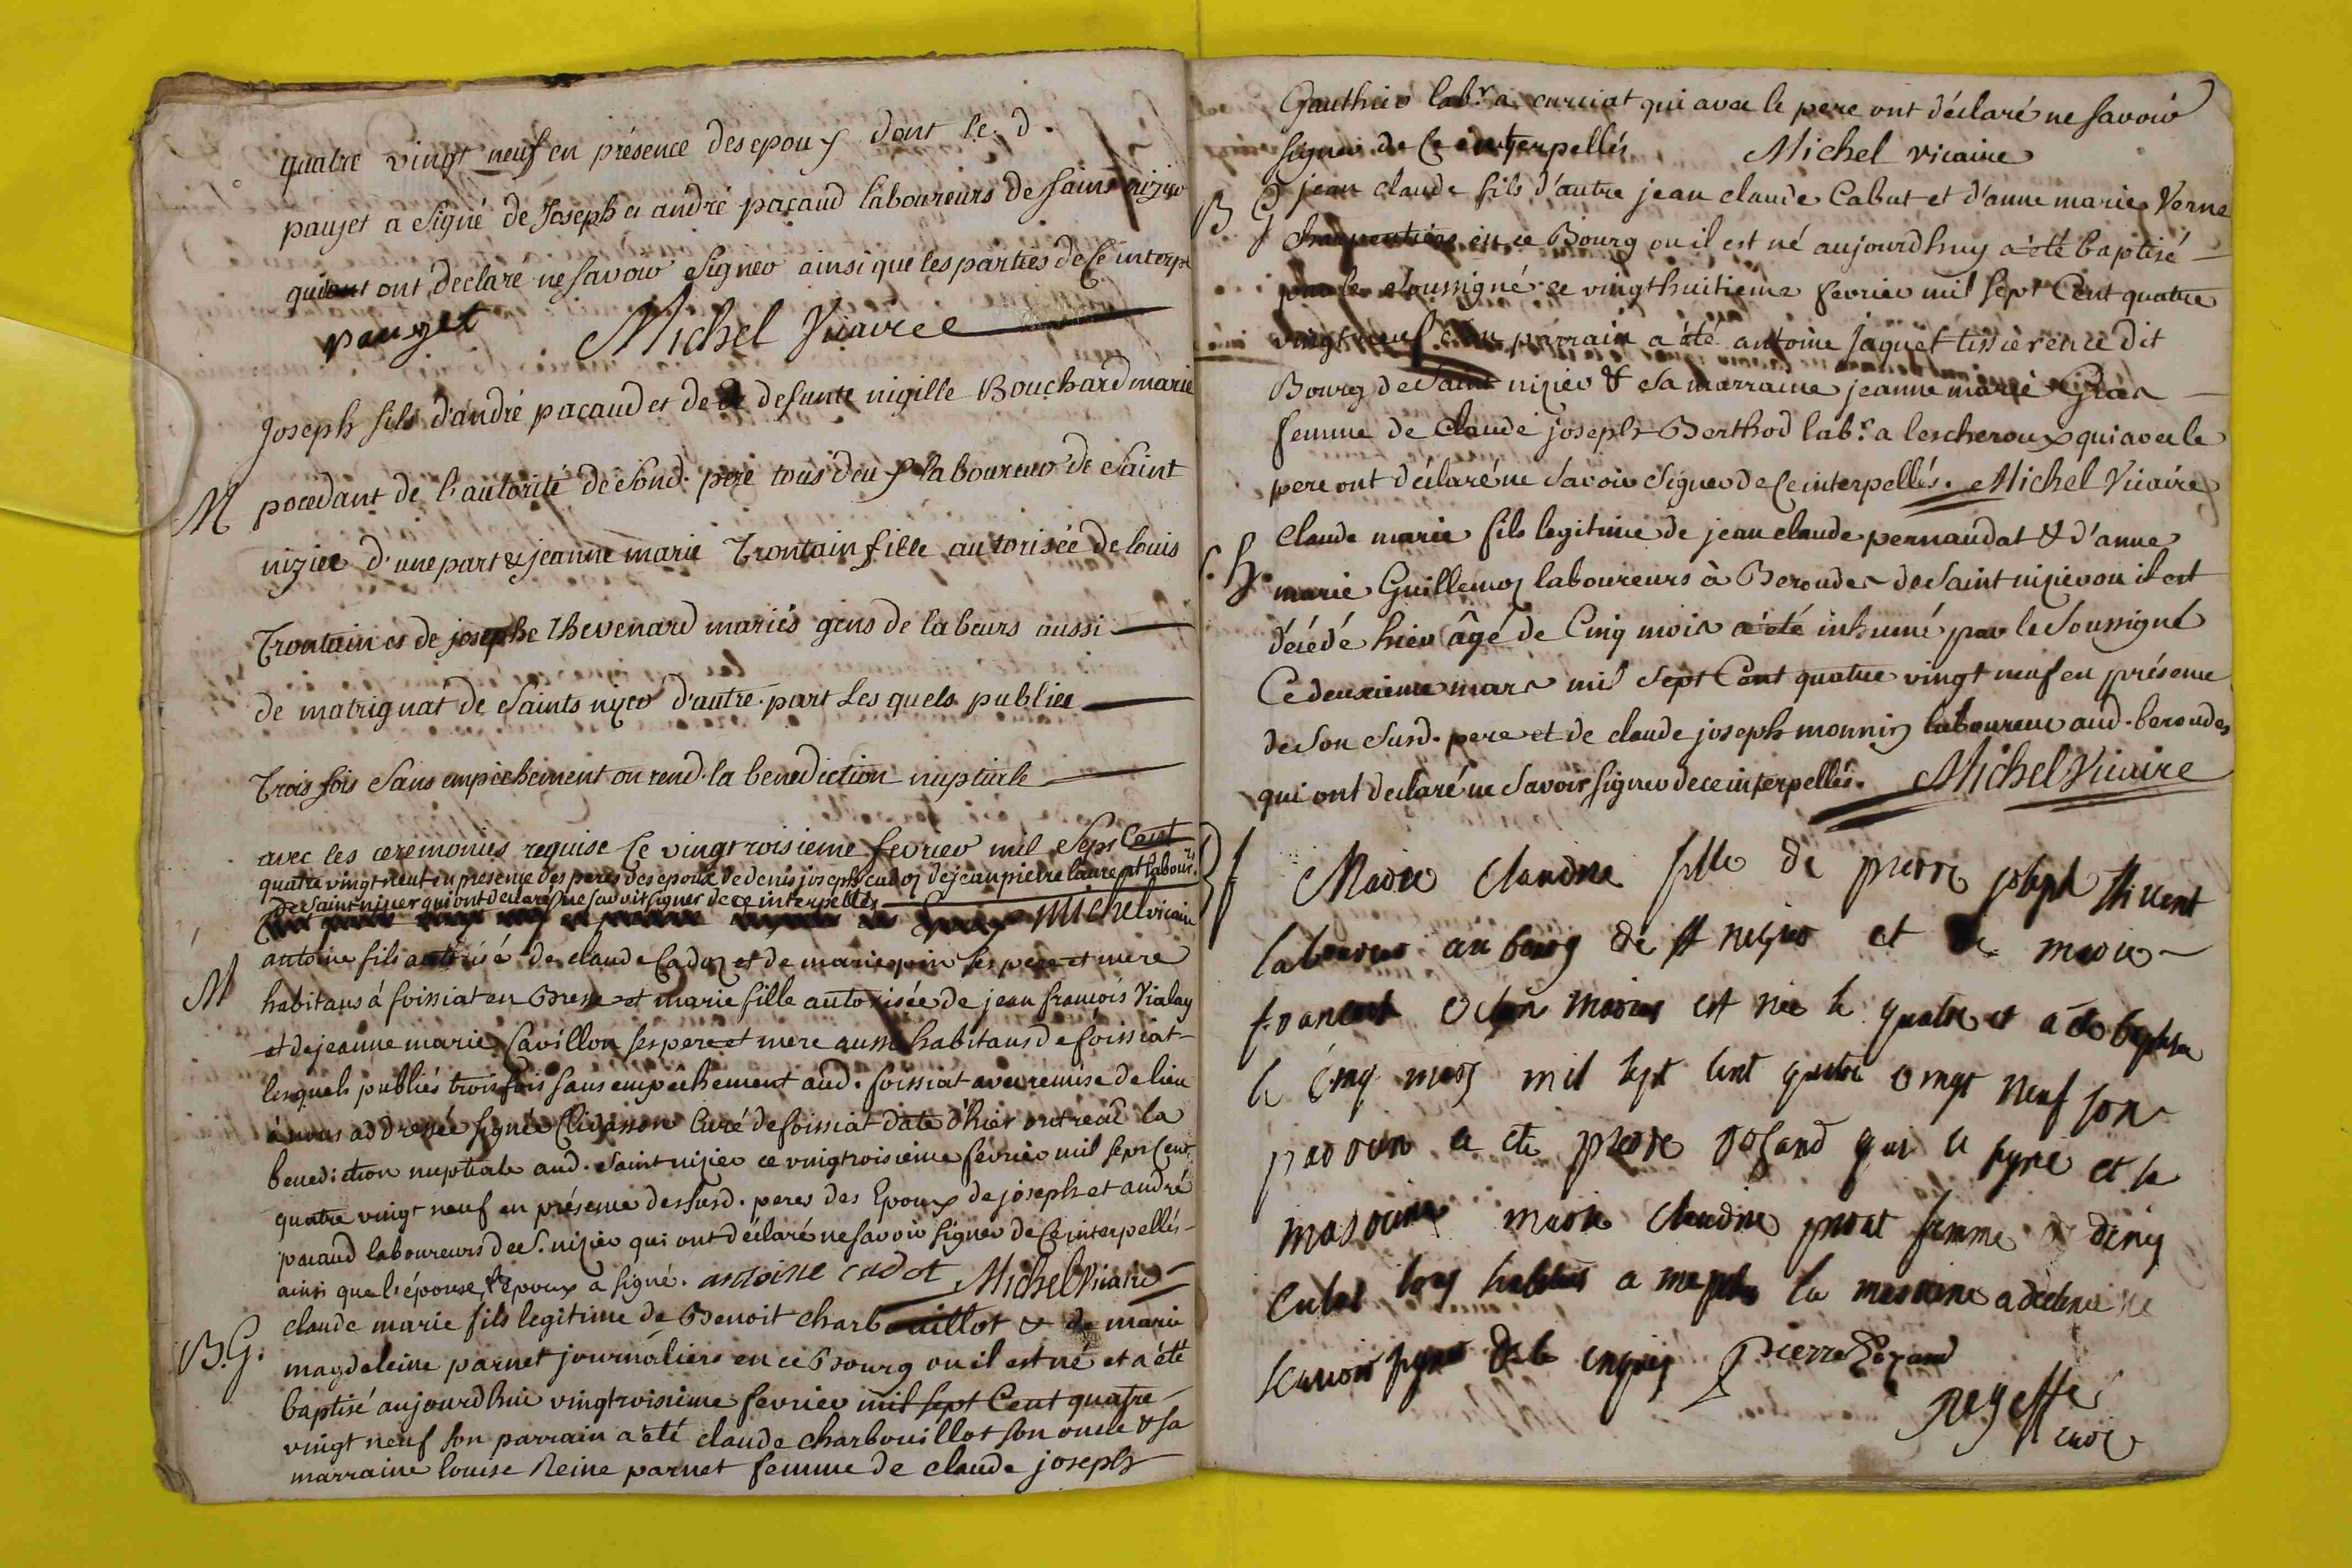 quatre vingt neuf en présence des epoux dont le d.
pauget a signé de Joseph et andré pacaud laboureurs de saint nizier
qui ont declaré ne savoir signer ainsi que les parties de ce interp
pauget Michel Vicaire
Joseph fils d'andré pacaud et de defunte nigille Bouchard marié
M
pocedant de l'autorité de sond. pere tous deux laboureurs de saint
nizier d'une part & jeanne marie Trontain fille autorisée de louis
Trontain et de josephe Thevenard mariés gens de labeurs aussi
de matrignat de saints nizier d'autre part Lesquels publiee
Trois fois sans empêchement on rend. la benediction nuptiale
avec les ceremonies requise Ce vingtroisieme fevrier mil Sept Cent
quatre vingt neuf en présence des peres des epoux de denis joseph cadoz de jean pierre laurent labours.
de saint nizier qui ont déclaré ne savoir signer de ce interpellés
Michel vicaire
M
antoine fils autorisé de claude Cadoz et de marie ses pere et mere
habitans á foissiat en Bresse et marie fille autorisée de jean francois Vialay
et de jeanne marie Cavillon ses pere et mere aussi habitans de foissiat
lesquels publiés trois fois sans empêchement aud. foissiat avec remise de lieu
à nous addressée signée Curé de foissiat date d'hier ont reçu la
benediction nuptiale aud. saint nizier ce vingtroisieme fevrier mil sept Cent
quatre vingt neuf en présence des susd. peres des Epoux de joseph et andré
pacaud laboureurs de S. nizier qui ont déclaré ne savoir signer de Ce interpellés
ainsi que l'épouse, l'époux a signé. antoine cadot Michel Vicaire
B.G.
claude marie fils legitime de Benoit charbouillot & de marie
magdeleine parnet journaliers en ce Bourg ou il est né et a été
baptisé aujourdhui vingtroisieme fevrier mil sept Cent quatre
vingt neuf son parrain a été claude charbouillot son oncle & sa
marraine louise Reine parnet femme de claude joseph
Gauthier labr. a curciat qui avec le pere ont déclaré ne savoir
signer de Ce interpellés Michel vicaire
B G
jean claude fils d'autre jean claude Cabut et d'anne marie Verne
charpentiers en ce Bourg ou il est né aujourdhuy a été baptisé
par le soussigné ce vingthuitieme fevrier mil sept Cent quatre
vingt neuf son parrain a été antoine jaquet tissier en ce dit
Bourg de saint nizier & sa marraine jeanne marie
femme de claude joseph Berthod labr. a lescheroux qui avec le
pere ont déclaré ne savoir signer de Ce interpellés. Michel Vicaire
S.
claude marie fils legitime de jean claude pernaudat & d'anne
marie Guillemoz laboureurs à Beroudes de saint nizier ou il est
décédé hier âgé de Cinq mois a été inhumé par le soussigné
Ce deuxieme mars mil sept Cent quatre vingt neuf en présence
de son susd. pere et de claude joseph monnis laboureur aud. beroudes
qui ont déclaré ne savoir signer de ce interpellés. Michel Vicaire
B f
Marie claudine fille de pierre joseph
laboureur au bourg de st nizier et de marie
son maries est née le quatre et a été baptisée
le cinq mars mil sept cent quatre vingt neuf son
parrain a été pierre qui a signé et sa
marraine marie claudine femme de denis
tous habitans a la marraine a declaré ne
savoir signer de ce enquis Pierre
Curé